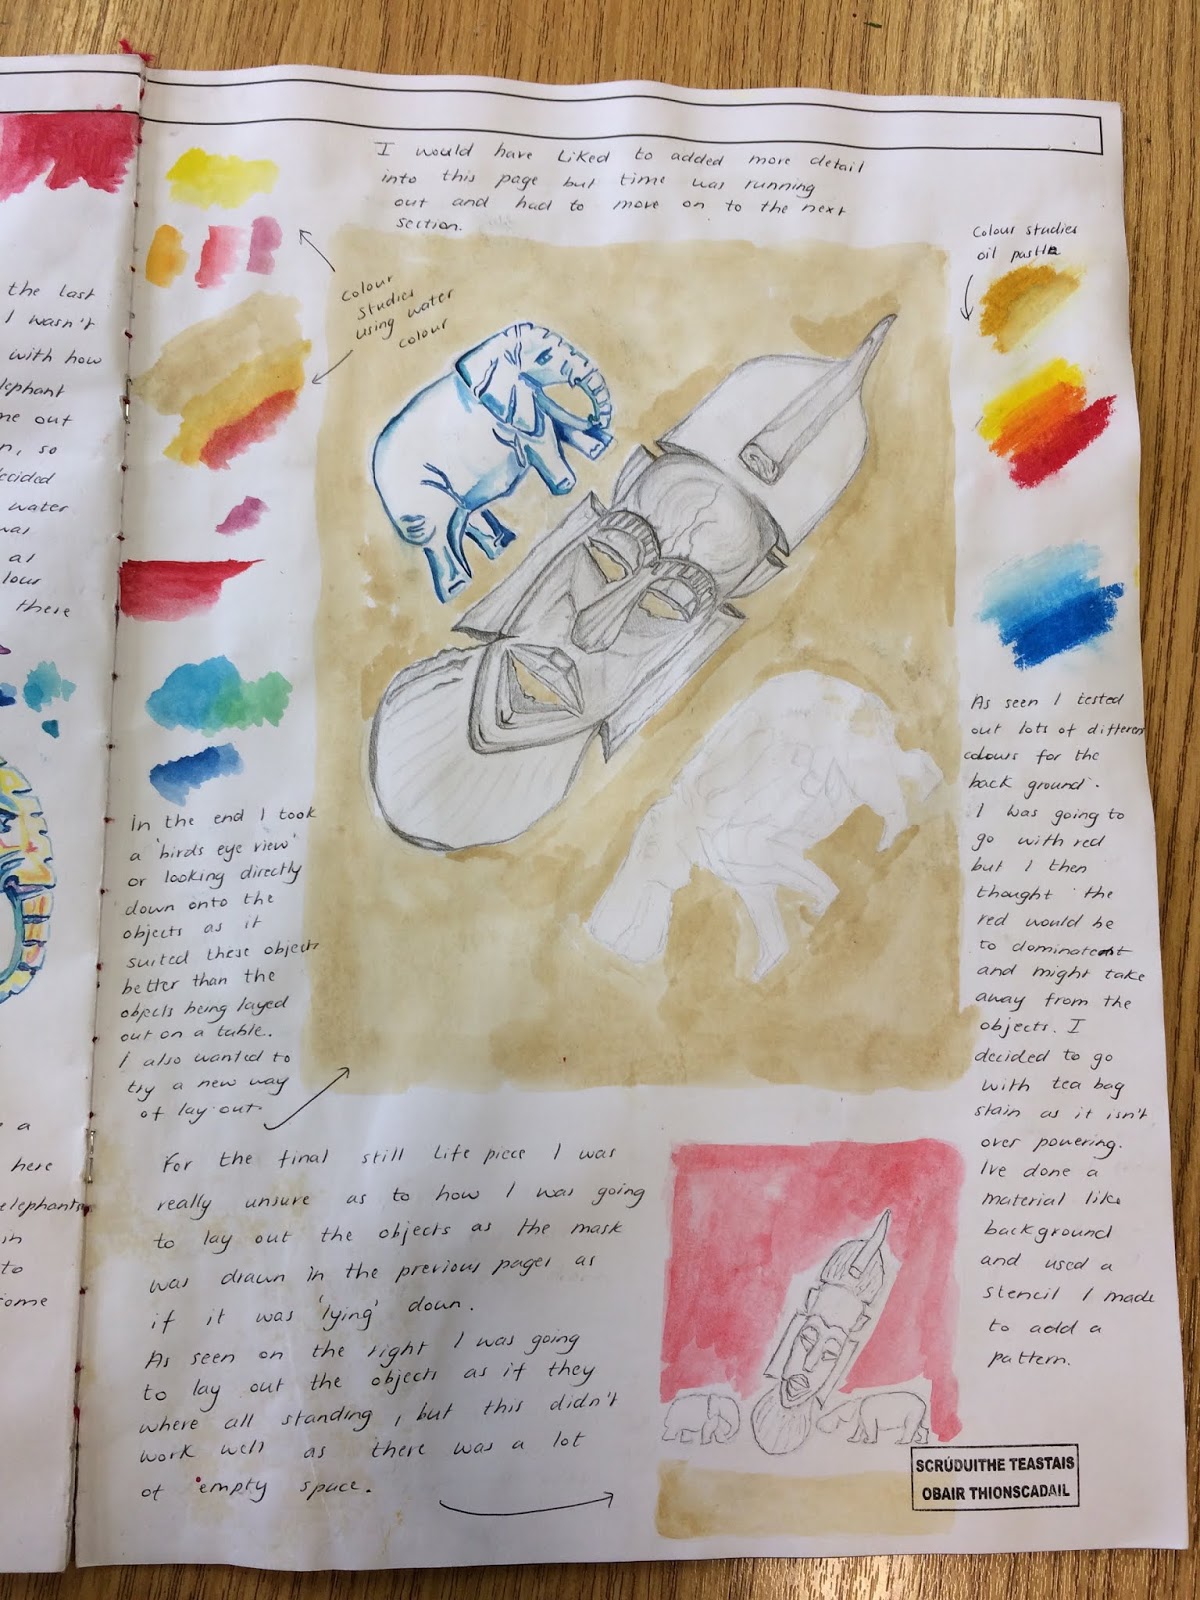 I would have liked to added more detail
into this page but time was running
out and had to move on to the next
section.
Colour
Studies
using water
colour
Colour studies
oil pastle
the last
I wasn't
with how
elephant
me out
n, so
decided
water
was
as
lour
there
In the end I took
a 'birds eye view'
or looking directly
down onto the
objects as it
suited these objects
better than the
objects being layed
out on a table.
I also wanted to
try a new way
of lay out.
As seen I tested
out lots of different
colours for the
back ground.
I was going to
go with red
but I then
thought the
red would be
to dominate
and might take
away from the
objects. I
decided to go
with tea bag
stain as it isn't
over powering.
Ive done a
material like
background
and used a
stencil I made
to add a
pattern.
a
here
elephants
in
to
some
For the final still life piece I was
really unsure as to how I was going
to lay out the objects as the mask
was drawn in the previous pages as
if it was 'lying' down.
As seen on the right I was going
to lay out the objects as if they
where all standing, but this didn't
work well as there was a lot
of empty space.
SCRÚDUITHE TEASTAIS
OBAIR THIONSCADAIL